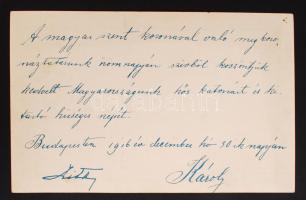 A magyar szent koronával való megkoro-
náztatásunk ünnepnapján szívből köszöntjük
kedvelt Magyarországunk hős katonáit és ki-
tartó hűséges népét.
Budapesten 1916 évi december hó 30-ik napján
Zita Károly